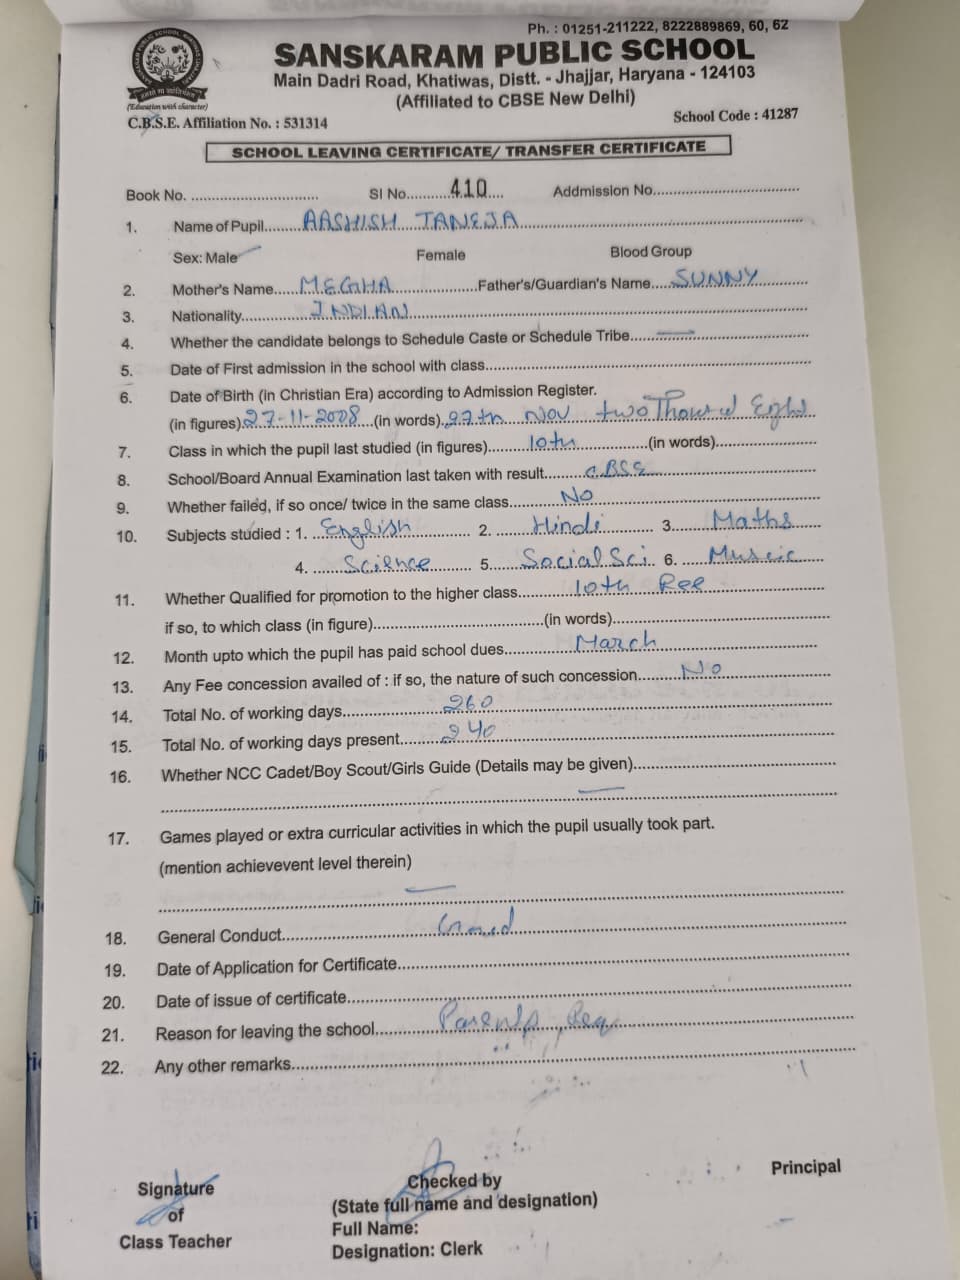 Ph. : 01251-211222, 8222889869, 60, 62
SANSKARAM PUBLIC SCHOOL
Main Dadri Road, Khatiwas, Distt. - Jhajjar, Haryana - 124103
(Affiliated to CBSE New Delhi)
(Education with character)
C.B.S.E. Affiliation No. : 531314 School Code : 41287
SCHOOL LEAVING CERTIFICATE/ TRANSFER CERTIFICATE
Book No. ............................... SI No..........410.... Addmission No....................................
1. Name of Pupil.........AASHISH TANEJA
Sex: Male Female Blood Group
2. Mother's Name......MEGHA.....................Father's/Guardian's Name.....SUNNY
3. Nationality.................INDIAN
4. Whether the candidate belongs to Schedule Caste or Schedule Tribe.....
5. Date of First admission in the school with class.....
6. Date of Birth (in Christian Era) according to Admission Register.
(in figures) 27-11-2008....(in words). 27th Nov two Thousand Eight
7. Class in which the pupil last studied (in figures)..........10th..................(in words).........................
8. School/Board Annual Examination last taken with result..........CBSE
9. Whether failed, if so once/ twice in the same class.............No
10. Subjects studied : 1. English 2. Hindi 3. Maths
4. Science 5. Social Sci 6. Museic
11. Whether Qualified for promotion to the higher class..............10th Ree
if so, to which class (in figure).........................................(in words).....
12. Month upto which the pupil has paid school dues..................March
13. Any Fee concession availed of : if so, the nature of such concession..........No
14. Total No. of working days.........................260
15. Total No. of working days present...........240
16. Whether NCC Cadet/Boy Scout/Girls Guide (Details may be given).....
17. Games played or extra curricular activities in which the pupil usually took part.
(mention achievevent level therein)
18. General Conduct.....Good
19. Date of Application for Certificate.....
20. Date of issue of certificate.....
21. Reason for leaving the school................Parents, Req
22. Any other remarks.....
Principal
Signature Checked by
of (State full name and designation)
Class Teacher Full Name:
Designation: Clerk